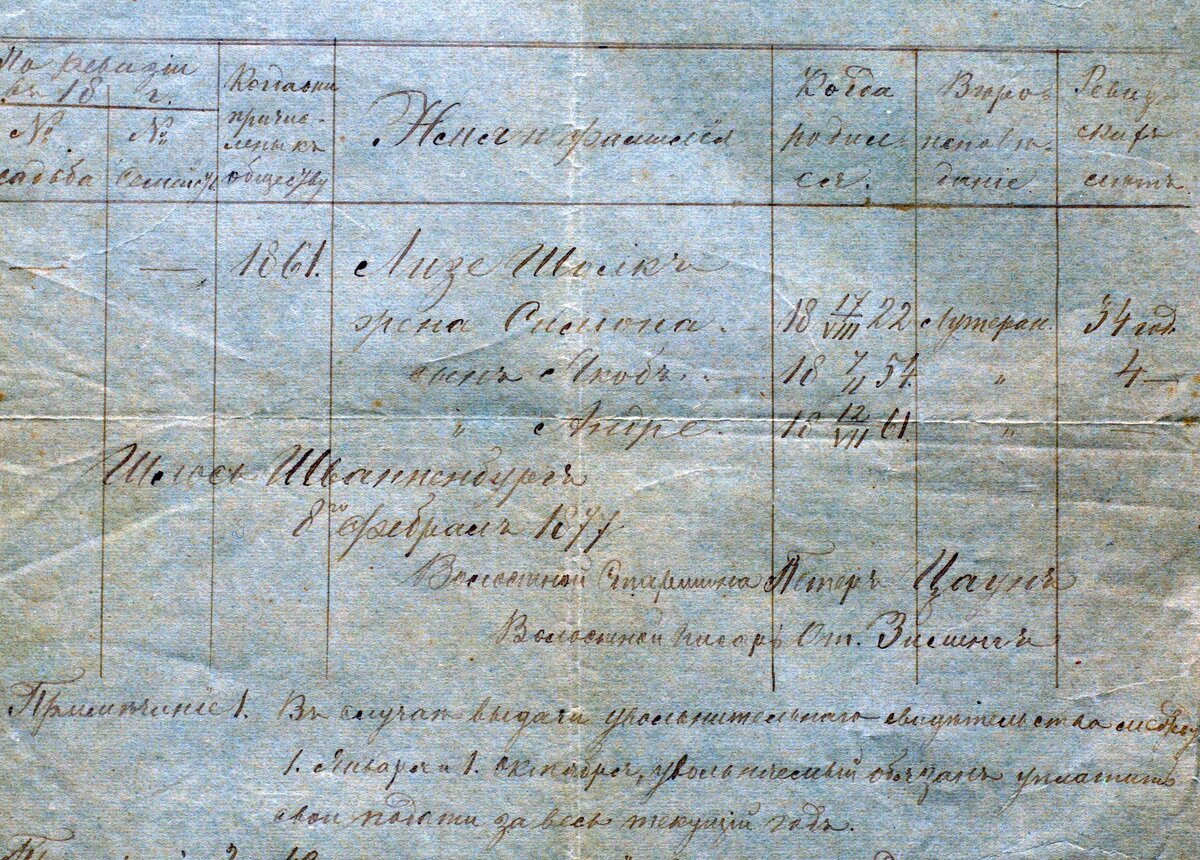 По ревизіи
въ 18 г.
№ усадьба
№ семейства
Когда они причис-
лены къ
обществу
Имя и фамилія
Когда
родил-
ся.
Вѣро-
исповѣ-
даніе.
Ревиз-
скихъ
лѣтъ
— — 1861. Лизе Шолкъ
жена Симона. 18 17/VIII 22 Лютеран. 34 год.
сынъ Якобъ. 18 7/II 54. „ 4 —
„ Андре. 18 12/VII 61. „ —
Шлосъ Шваненбургъ
8го Февраля 1877
Волостной Старшина Петеръ Цаунъ
Волостной писарь От. Зилингъ
Примѣчаніе 1. Въ случаѣ выдачи увольнительнаго свидѣтельства между
1. Января и 1. Октября, увольняемый обязанъ уплатить
свои подати за весь текущій годъ.